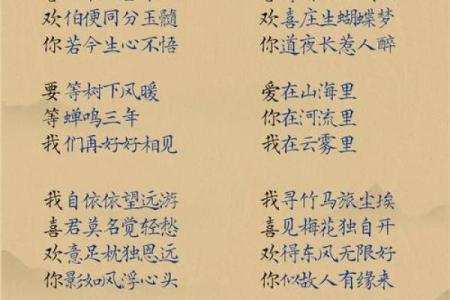 欢伯便同分玉髓
你若今生心不悟
喜庄生蝴蝶梦
你道夜长惹人醉
要等树下风暖
等蝉鸣三年
我们再好好相见
爱在山海里
你在河流里
我在云雾里
我自依依望远游
喜君莫名觉轻愁
欢意足枕独恩远
你影如风浮心头
我寻竹马旅尘埃
喜见梅花独自开
欢得东风无限好
你似故人有缘来